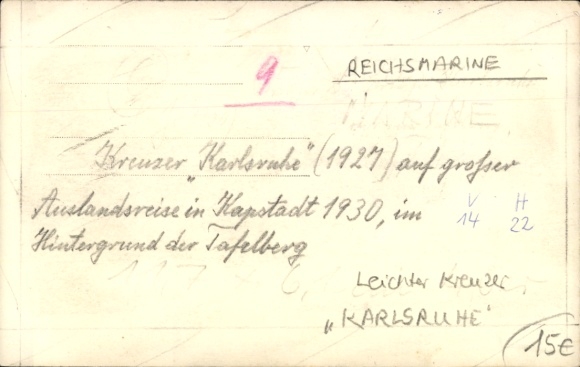 REICHSMARINE
9
MARINE
Kreuzer „Karlsruhe" (1927) auf grosser
Auslandsreise in Kapstadt 1930, im
V H
14 22
Hintergrund der Tafelberg
Leichter Kreuzer
„KARLSRUHE"
15€